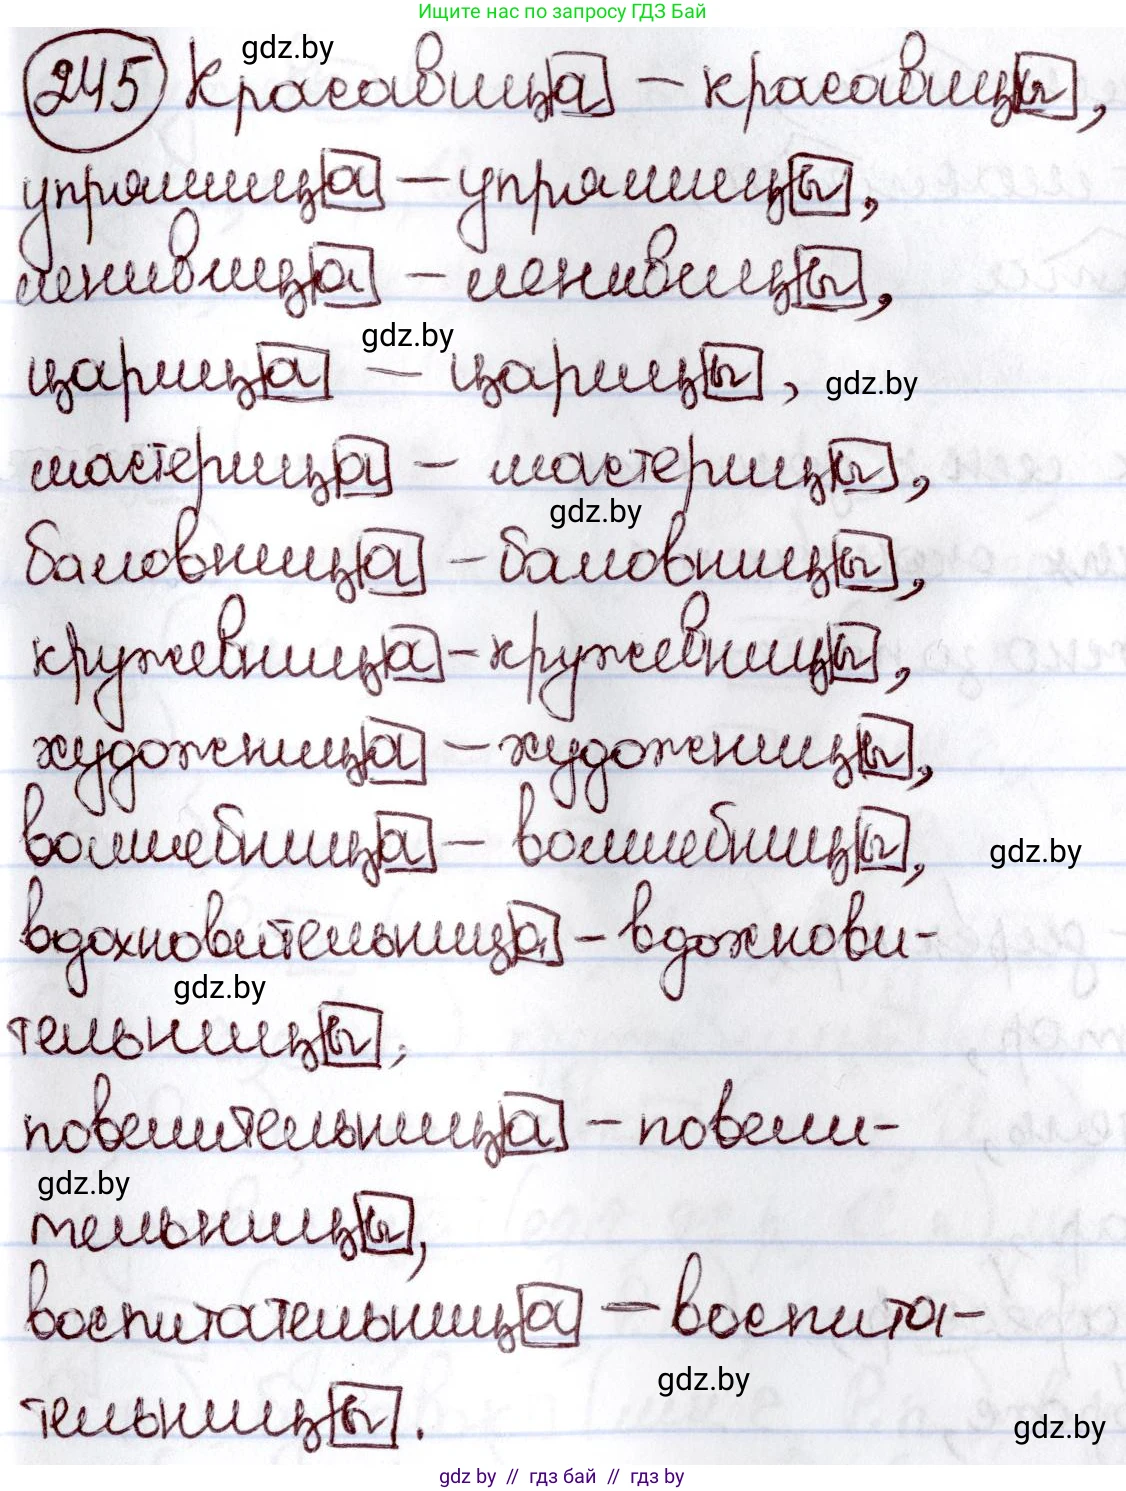 Ищите нас по запросу ГДЗ Бай
gdz.by
245 Красавица – красавицы,
упрямица – упрямицы,
ленивица – ленивицы,
gdz.by
царица – царицы,
gdz.by
мастерица – мастерицы,
gdz.by
баловница – баловницы,
кружевница – кружевницы,
художница – художницы,
волшебница – волшебницы,
gdz.by
вдохновительница – вдохнови-
gdz.by
тельницы,
повелительница – повели-
gdz.by
тельницы,
воспитательница – воспита-
gdz.by
тельницы.
gdz.by
gdz by // гдз бай // гдз by